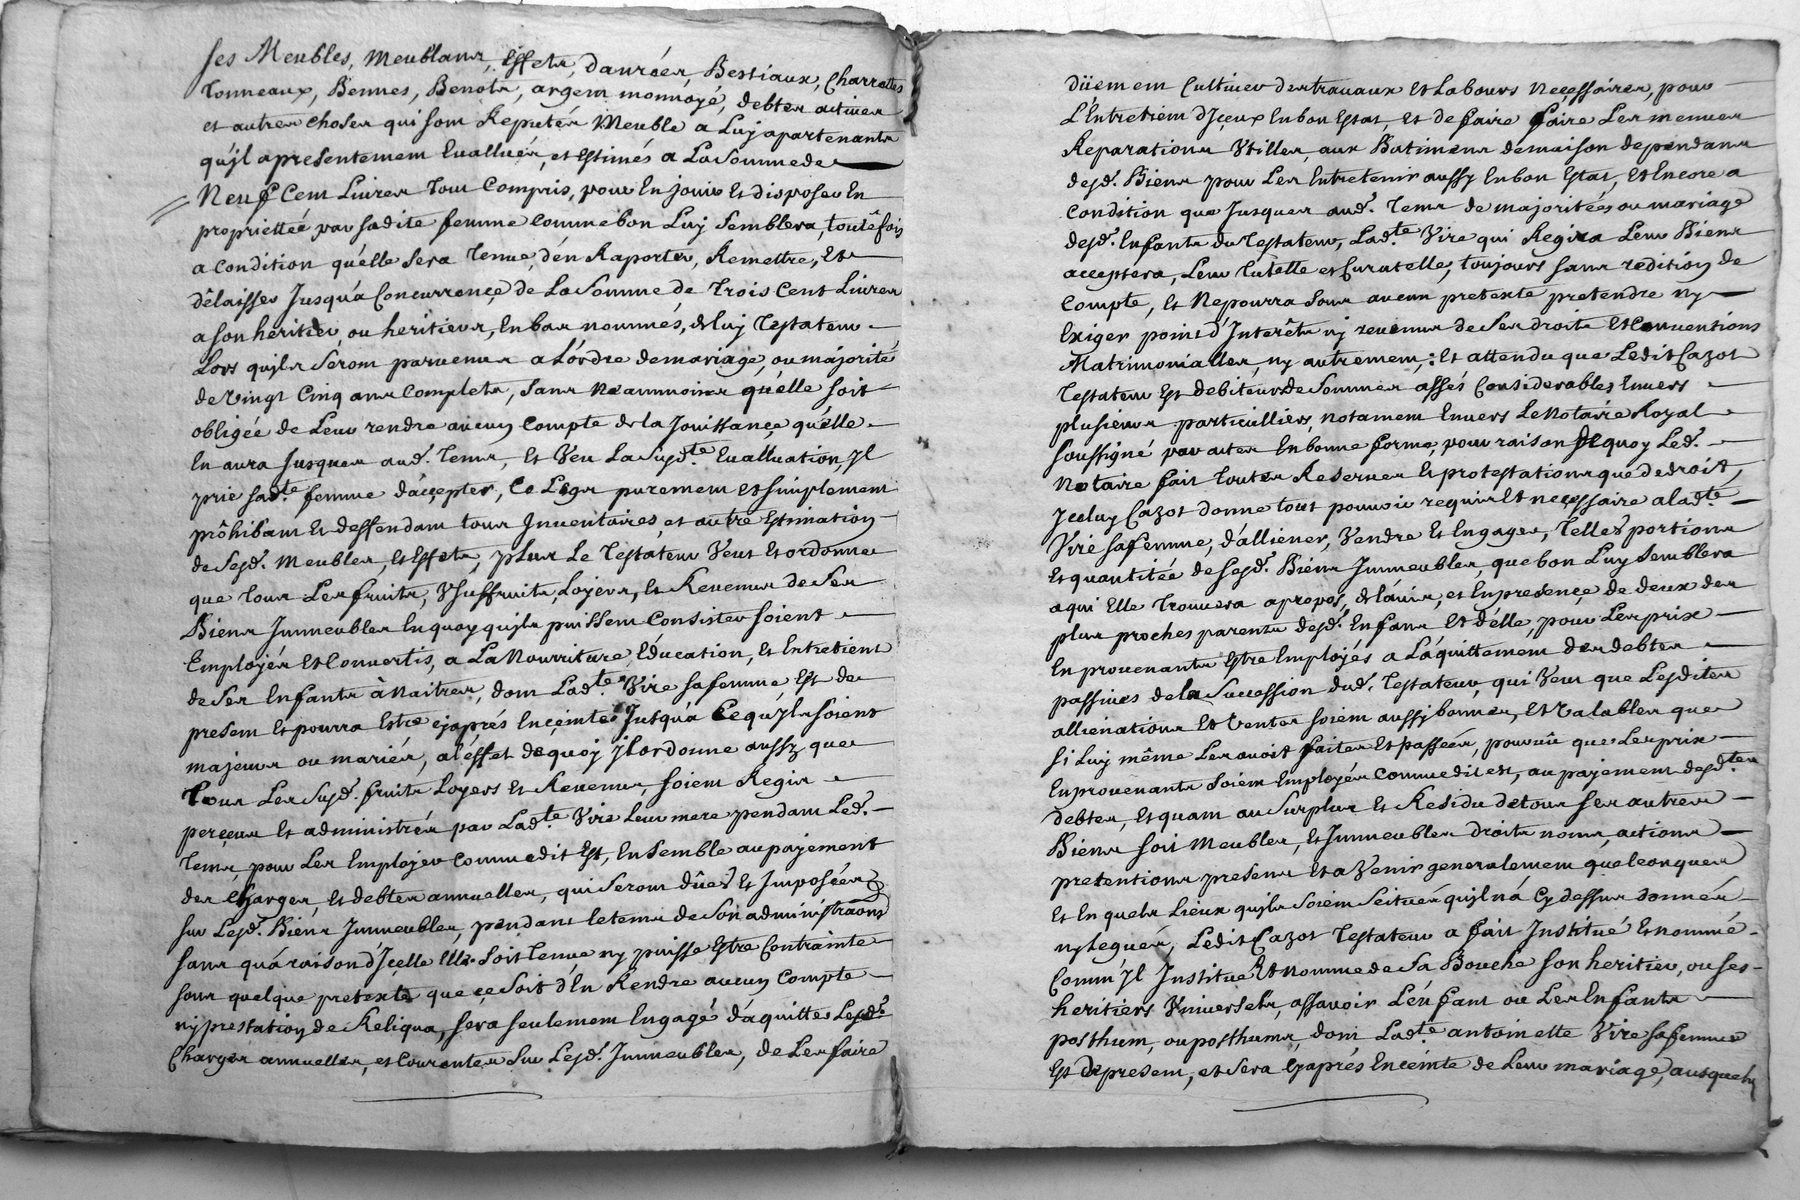 ses Meubles, Meublans, Effets, danrées, Bestiaux, Charrettes
Tonneaux, Bennes, Benots, argent monnoyé, debtes actives
et autres choses qui sont Reputés Meuble a Luy apartenants
qu'jl a presentement Evallués, et Estimés a La Somme de
Neuf Cent Livres tout Compris, pour En jouir Et disposer En
proprietteé par sadite femme comme bon Luy Semblera, toutéfois
a condition qu'elle sera Tenue d'én Raporter, Remettre, Et
délaisser Jusqu'a Concurrençe de La Somme de Trois Cent Livres
a son heritier, ou heritiers, En bas nommés, de luy Testateur
Lors qu'jls seront parvenus a L'ordre de mariage, ou májorité
de vingt Cinq ans Complets, sans Neanmoins qu'elle soit
obligée de Leur rendre aucun Compte de la Jouissançe qu'élle
En aura Jusques aud. tems, Et Veu La susd.te Evalluation, Jl
prie sad.te femme d'açcepter, Ce Legs purement et simplement
prôhibant Et deffendant tous Jnventaires, et autre Estimation
de sesd. Meubles, et Effets, plus Le Testateur Veut Et ordonne
que tous Les fruits, Vsuffruits, Loyers, Et Revenus de Ses
Biens Jmmeubles En quoy qu'jls puissent Consister soient
Employés Et Convertis, a La Nourriture, Education, Et Entretient
de Ses Enfants à Naitres, dont Lad.te Vire sa femme Est de
present Et pourra Estre cj'aprés Ençeinte, Jusqu'a Ce qu'Jls soient
majeurs ou mariés, a l'éffet de quoy jl ordonne aussy que
Tous Les susd. fruits Loyers Et Revenus, soient Regis
perçeus Et administrés par Lad.te Vire Leur mere pendant Led.
Tems, pour Les Employer comme dit Est, Ensemble au payement
des Charges, Et debtes annuelles, qui seront dûes Et Jmposées
sur Lesd. Biens Jmmeubles, pendant le tems de Son administraons
sans qu'á raison d'Jçelle Elle Soit tenue ny puisse Estre Contrainte
sous quelque pretexte que ce Soit d'én Rendre aucun Compte
ny prestation de Reliqua, sera seulement Engagé d'aquitter Lesd.
Charges annuelles, et Courantes Sur Lesd. Jmmeubles, de Les faire
düement Cultiver des travaux Et Labours Neçessaires, pour
L'Entretient d'Jçeux En bon Estat, Et de faire faire Les menues
Reparations Vtilles, aux Batimens de maison dependans
desd. Biens pour Les Entretenir aussy En bon Estat, Et Encore a
Condition que Jusques aud. tems de majoritées ou mariage
desd. Enfants du Testateur, Lad.te Vire qui Regira Leur Biens
acceptera, Leur Tutelle et Curatelle, toujours sans redition de
Compte, Et Ne pourra sous aucun pretexte pretendre ny
Exiger point d'Interêts ny revenus de Ses droits Et Conventions
Matrimonialles, ny autrement; Et attendu que Ledit Cazot
Testateur Est debiteur de Sommes assés Considerables Envers
plusieurs particulliers, notament Envers Le Notaire Royal
soussigné par actes En bonne forme, pour raison de quoy Led.
Notaire fait toutes Reserves Et protestations que de droit,
Jceluy Cazot donne tout pouvoir requis Et necessaire a lad.te
Vire sa femme, d'alliener, Vendre Et Engager, Telles portions
Et quantitée de sesd. Biens Jmmeubles, que bon Luy Semblera
a qui Elle trouvera a propos, de l'avis, et En presençe de deux des
plus proches parents desd. Enfans Et d'élle, pour Les prix
En provenants Estre Employés a L'áquittement des debtes
passives de la Succession dud. Testateur, qui Veut que Lesdites
allienations Et Ventes soient aussy bonnes, Et Valables que
si Luy même Les avoit faites Et passées, pourvû que Les prix
En provenants Soient Employés comme dit est, au payement desd.tes
debtes, Et quant au Surplus Et Residu de tous ses autres
Biens soit Meubles, Et Jmmeubles droits noms, actions
pretentions presens Et a Venir generalement quelconques
Et En quels Lieux qu'jls soient scitués qu'jl n'á Cy dessus donnés
ny legués, Ledit Cazot Testateur a fait Jnstitué Et nommé
Comm'Jl Jnstitue Et Nomme de Sa Bouche son heritier, ou ses
heritiers Vniversels, assavoir L'énfant ou Les Enfants
posthum, ou posthums, dont Lad.te antoinette Vire sa femme
Est de present, et sera cy aprés Enceinte de Leur mariage, ausquels